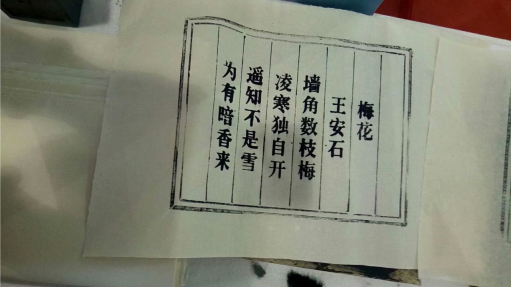 梅花
王安石
墙角数枝梅
凌寒独自开
遥知不是雪
为有暗香来